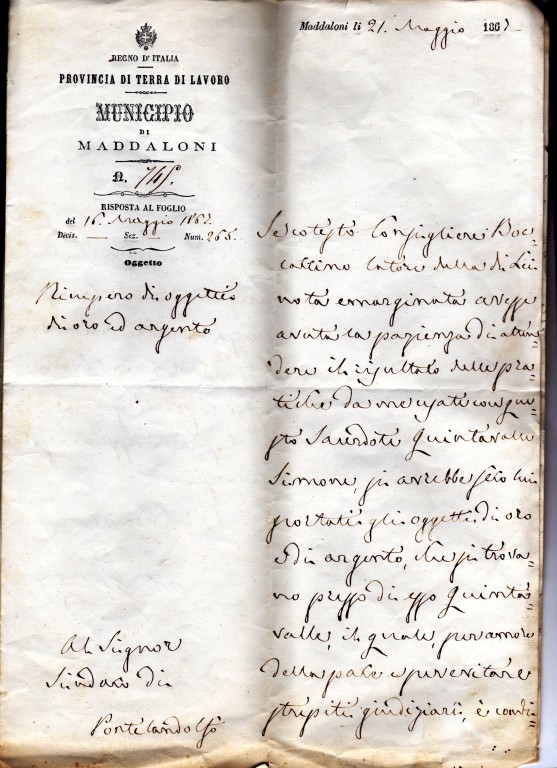 REGNO D'ITALIA
PROVINCIA DI TERRA DI LAVORO
MUNICIPIO
DI
MADDALONI
N. 745.
RISPOSTA AL FOGLIO
del 16. Maggio 1862.
Divis. — Sez. — Num. 265.
Oggetto
Ricupero di oggetti
di oro ed argento
Al Signor
Sindaco di
Pontelandolfo
Maddaloni li 21. Maggio 1862
Se cotesto Consigliere Boc=
caccino latore della di Lei
nota emarginata avesse
avuta la pazienza di atten
dere il risultato delle pra=
tiche da me usate con que=
sto Sacerdote Quintavalle
Simone, si avrebbe seco lui
portati gli oggetti di oro
e di argento, che si trova=
no presso di esso Quinta=
valle, il quale, per amore
della pace e per evitare
strepiti giudiziarii, è condi=